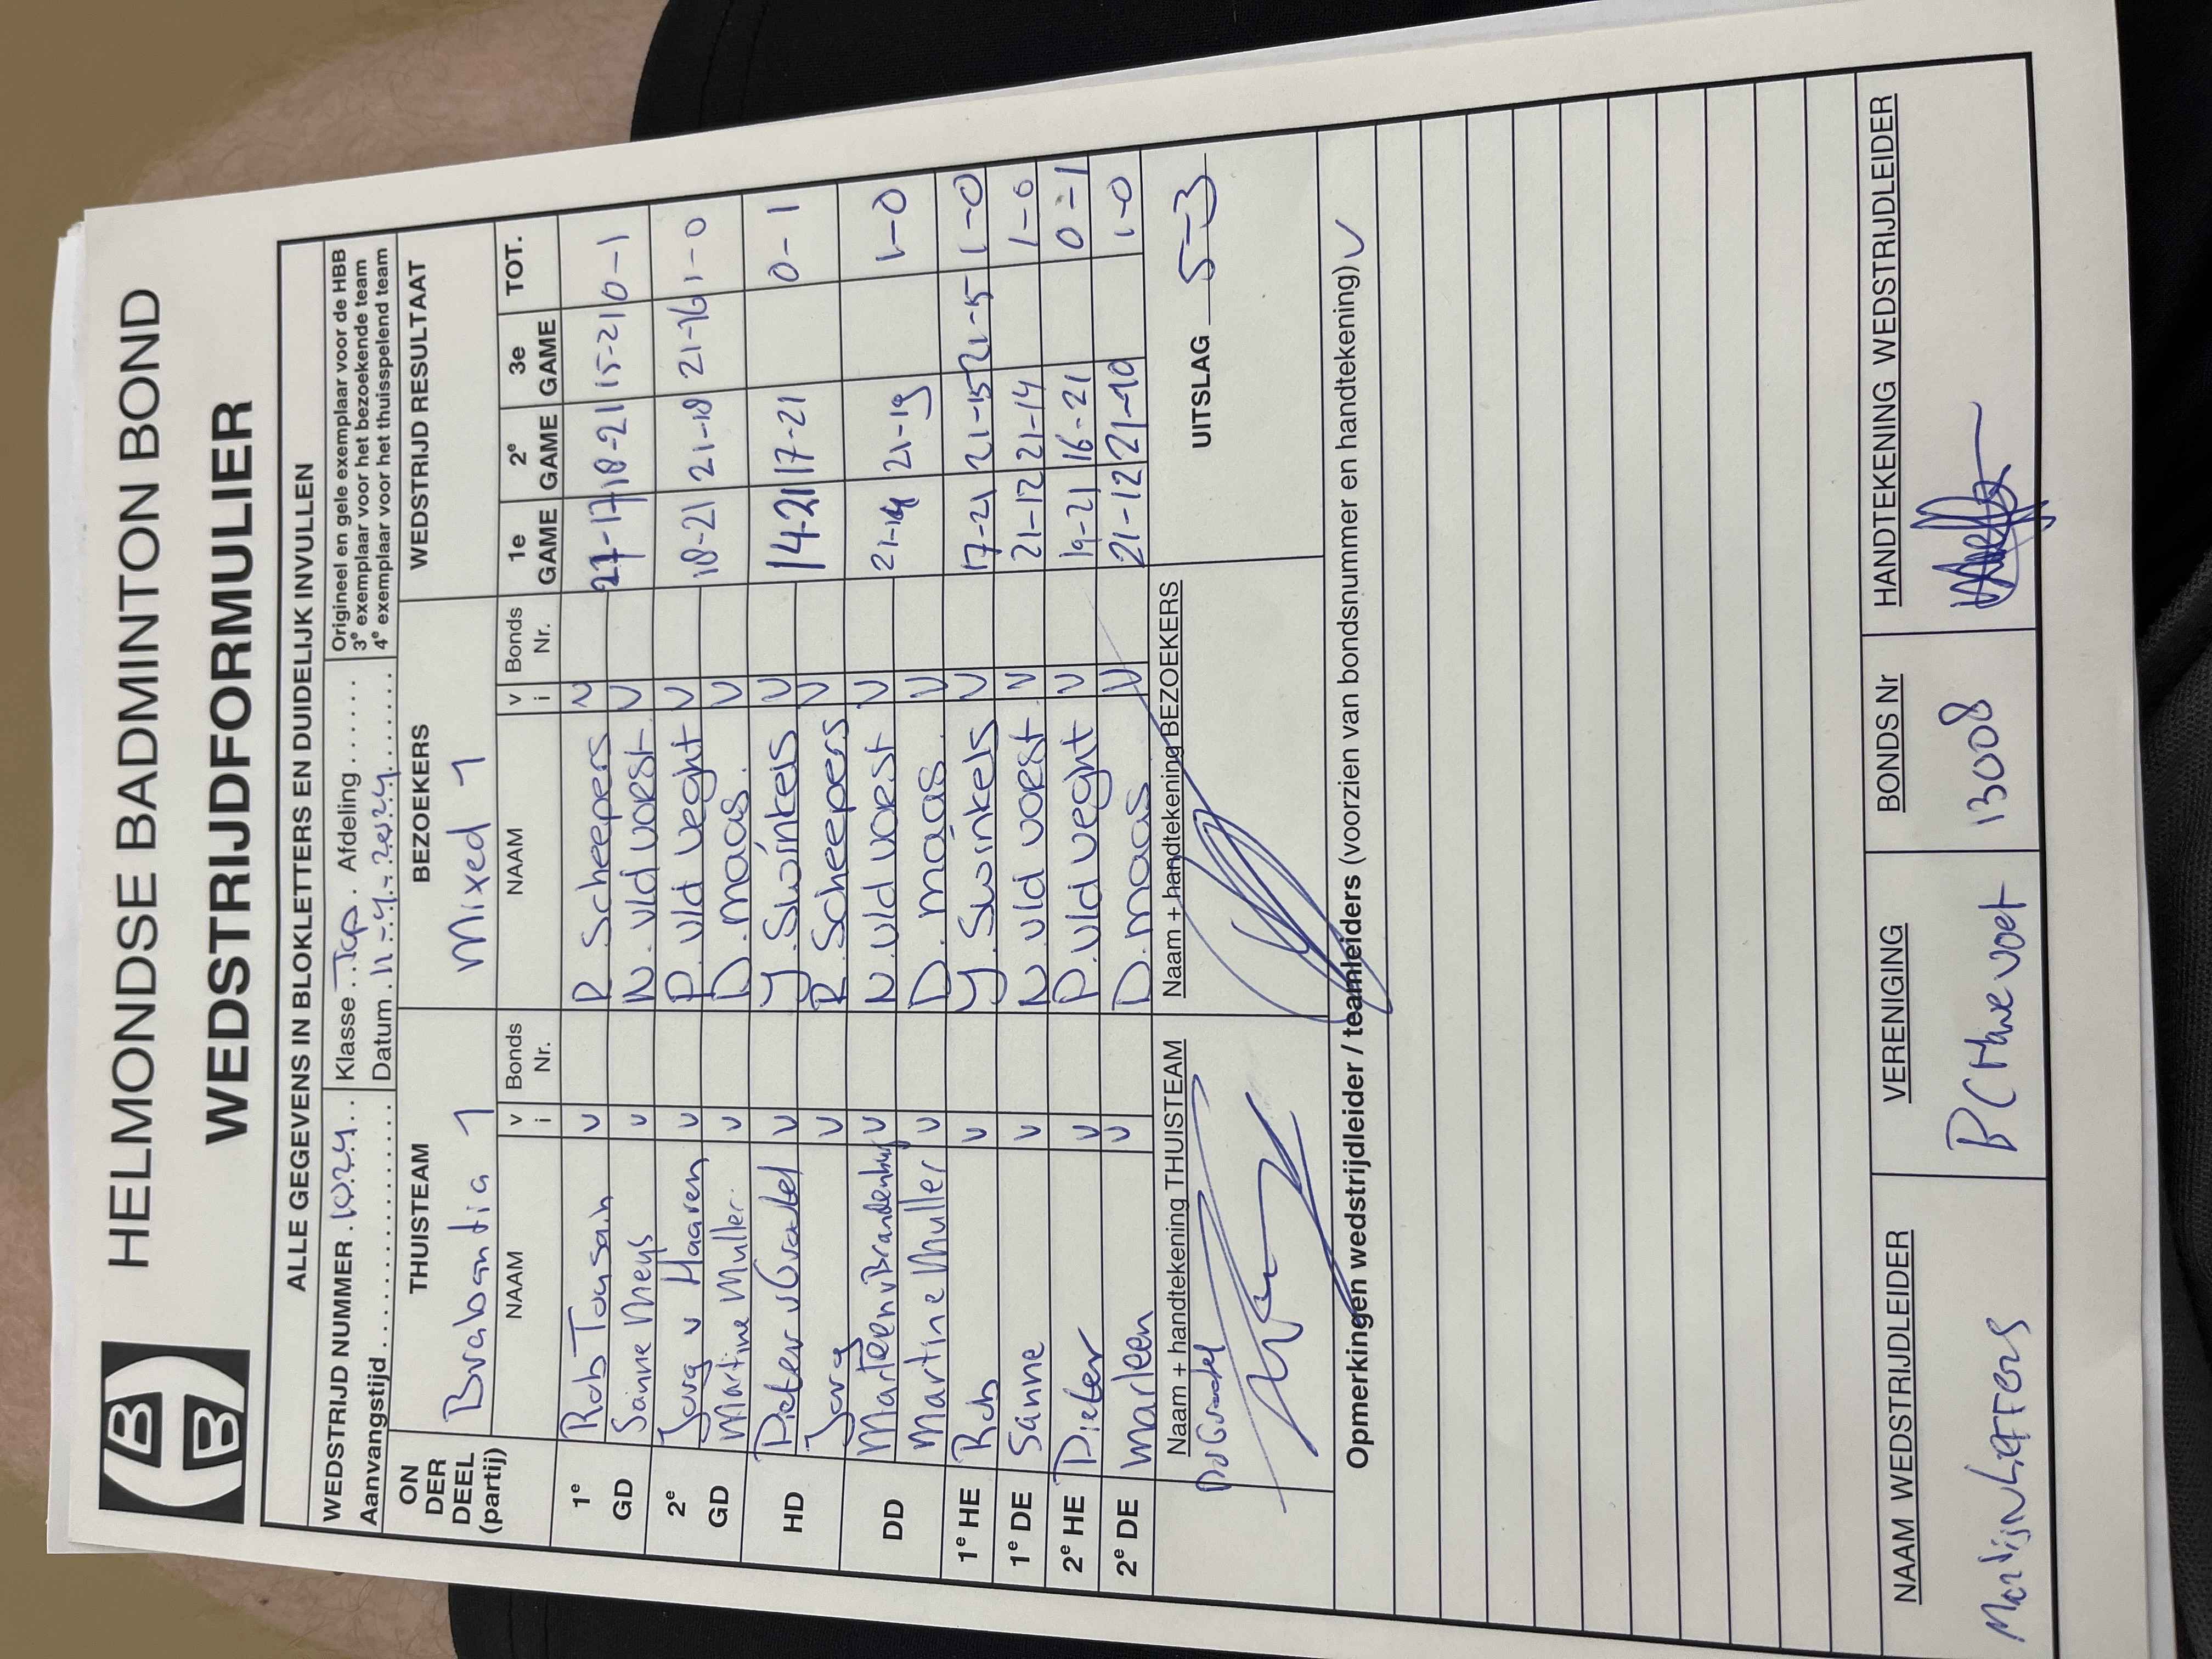 HELMONDSE BADMINTON BOND
WEDSTRIJDFORMULIER
ALLE GEGEVENS IN BLOKLETTERS EN DUIDELIJK INVULLEN
WEDSTRIJD NUMMER . 1024 . . Klasse . Top . Afdeling . . . . . .
Aanvangstijd Datum . 11 - 4 - 2024
Origineel en gele exemplaar voor de HBB
3e exemplaar voor het bezoekende team
4e exemplaar voor het thuisspelend team
ON DER DEEL (partij) THUISTEAM BEZOEKERS WEDSTRIJD RESULTAAT
Brabantia 1 Mixed 1
NAAM v i Bonds Nr. NAAM v i Bonds Nr. 1e GAME 2e GAME 3e GAME TOT.
1e GD Rob Tousain v R. Scheepers v 21-17 18-21 15-21 0-1
Sanne Meys v N. vld vorst v
2e GD Jorg v Haaren v P. vld veght v 18-21 21-18 21-16 1-0
Martine Muller v D. maas. v
HD Pieter v Gradel v Y. Swinkels v 14-21 17-21 0-1
Jorg v R. Scheepers v
DD Marleen v Brandenburg v N. vld vorst v 21-19 1-0
Martine Muller v D. maas v
1e HE Rob v Y. Swinkels v 17-21 21-15 21-15 1-0
1e DE Sanne v N. vld vorst v 21-12 21-14 1-0
2e HE Pieter v P. vld veght v 19-21 16-21 0-1
2e DE Marleen v D. maas v 21-12 21-10 1-0
Naam + handtekening THUISTEAM Naam + handtekening BEZOEKERS UITSLAG 5-3
P v Gradel
Opmerkingen wedstrijdleider / teamleiders (voorzien van bondsnummer en handtekening) v
NAAM WEDSTRIJDLEIDER VERENIGING BONDS Nr HANDTEKENING WEDSTRIJDLEIDER
Martijn Leffers BC 13008